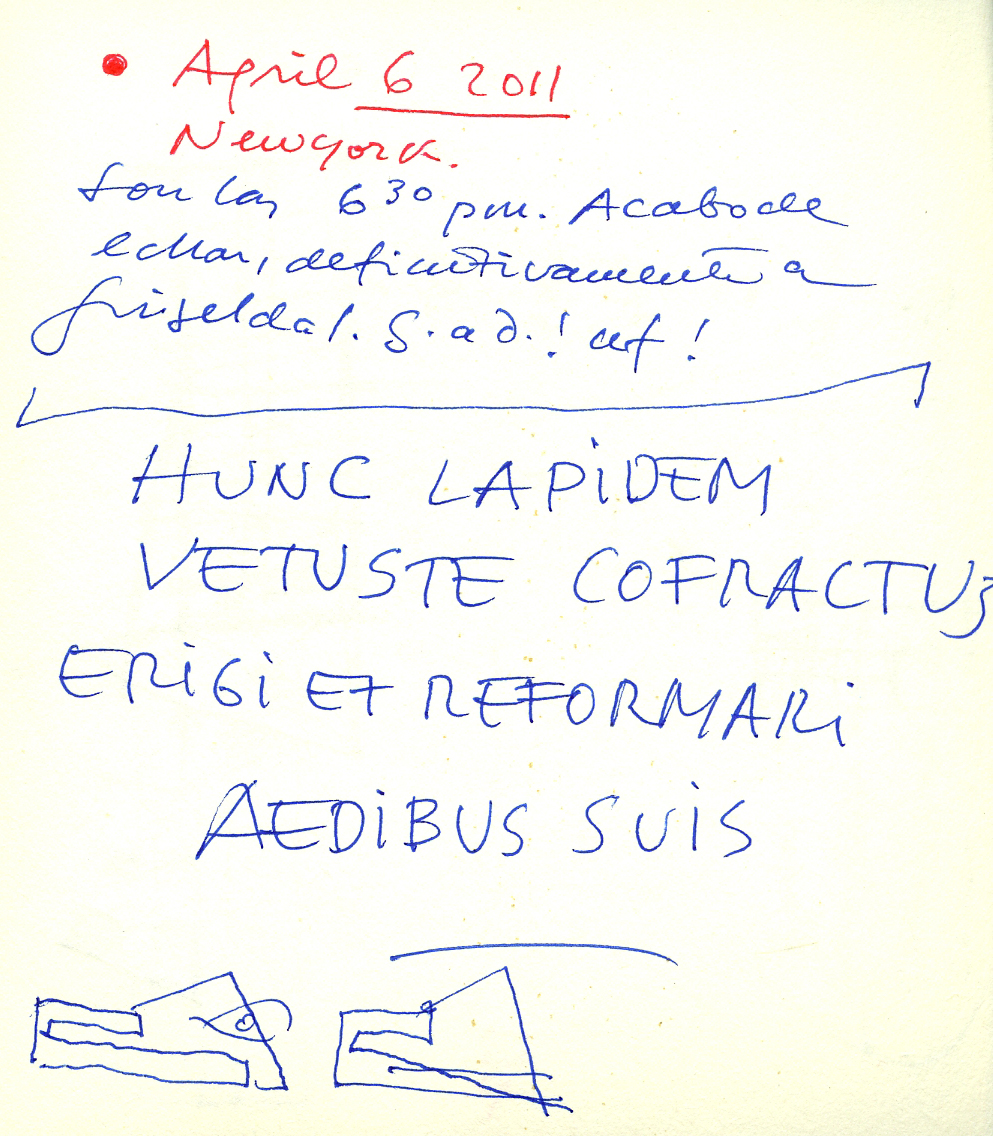 • April 6 2011
Newyork.
Son las 6 30 pm. Acabo de
echar, definitivamente a
Griselda/. G. a D.! uf!
HUNC LAPiDEM
VETUSTE COFRACTUS
ERiGi ET REFORMARi
AEDiBUS SUiS